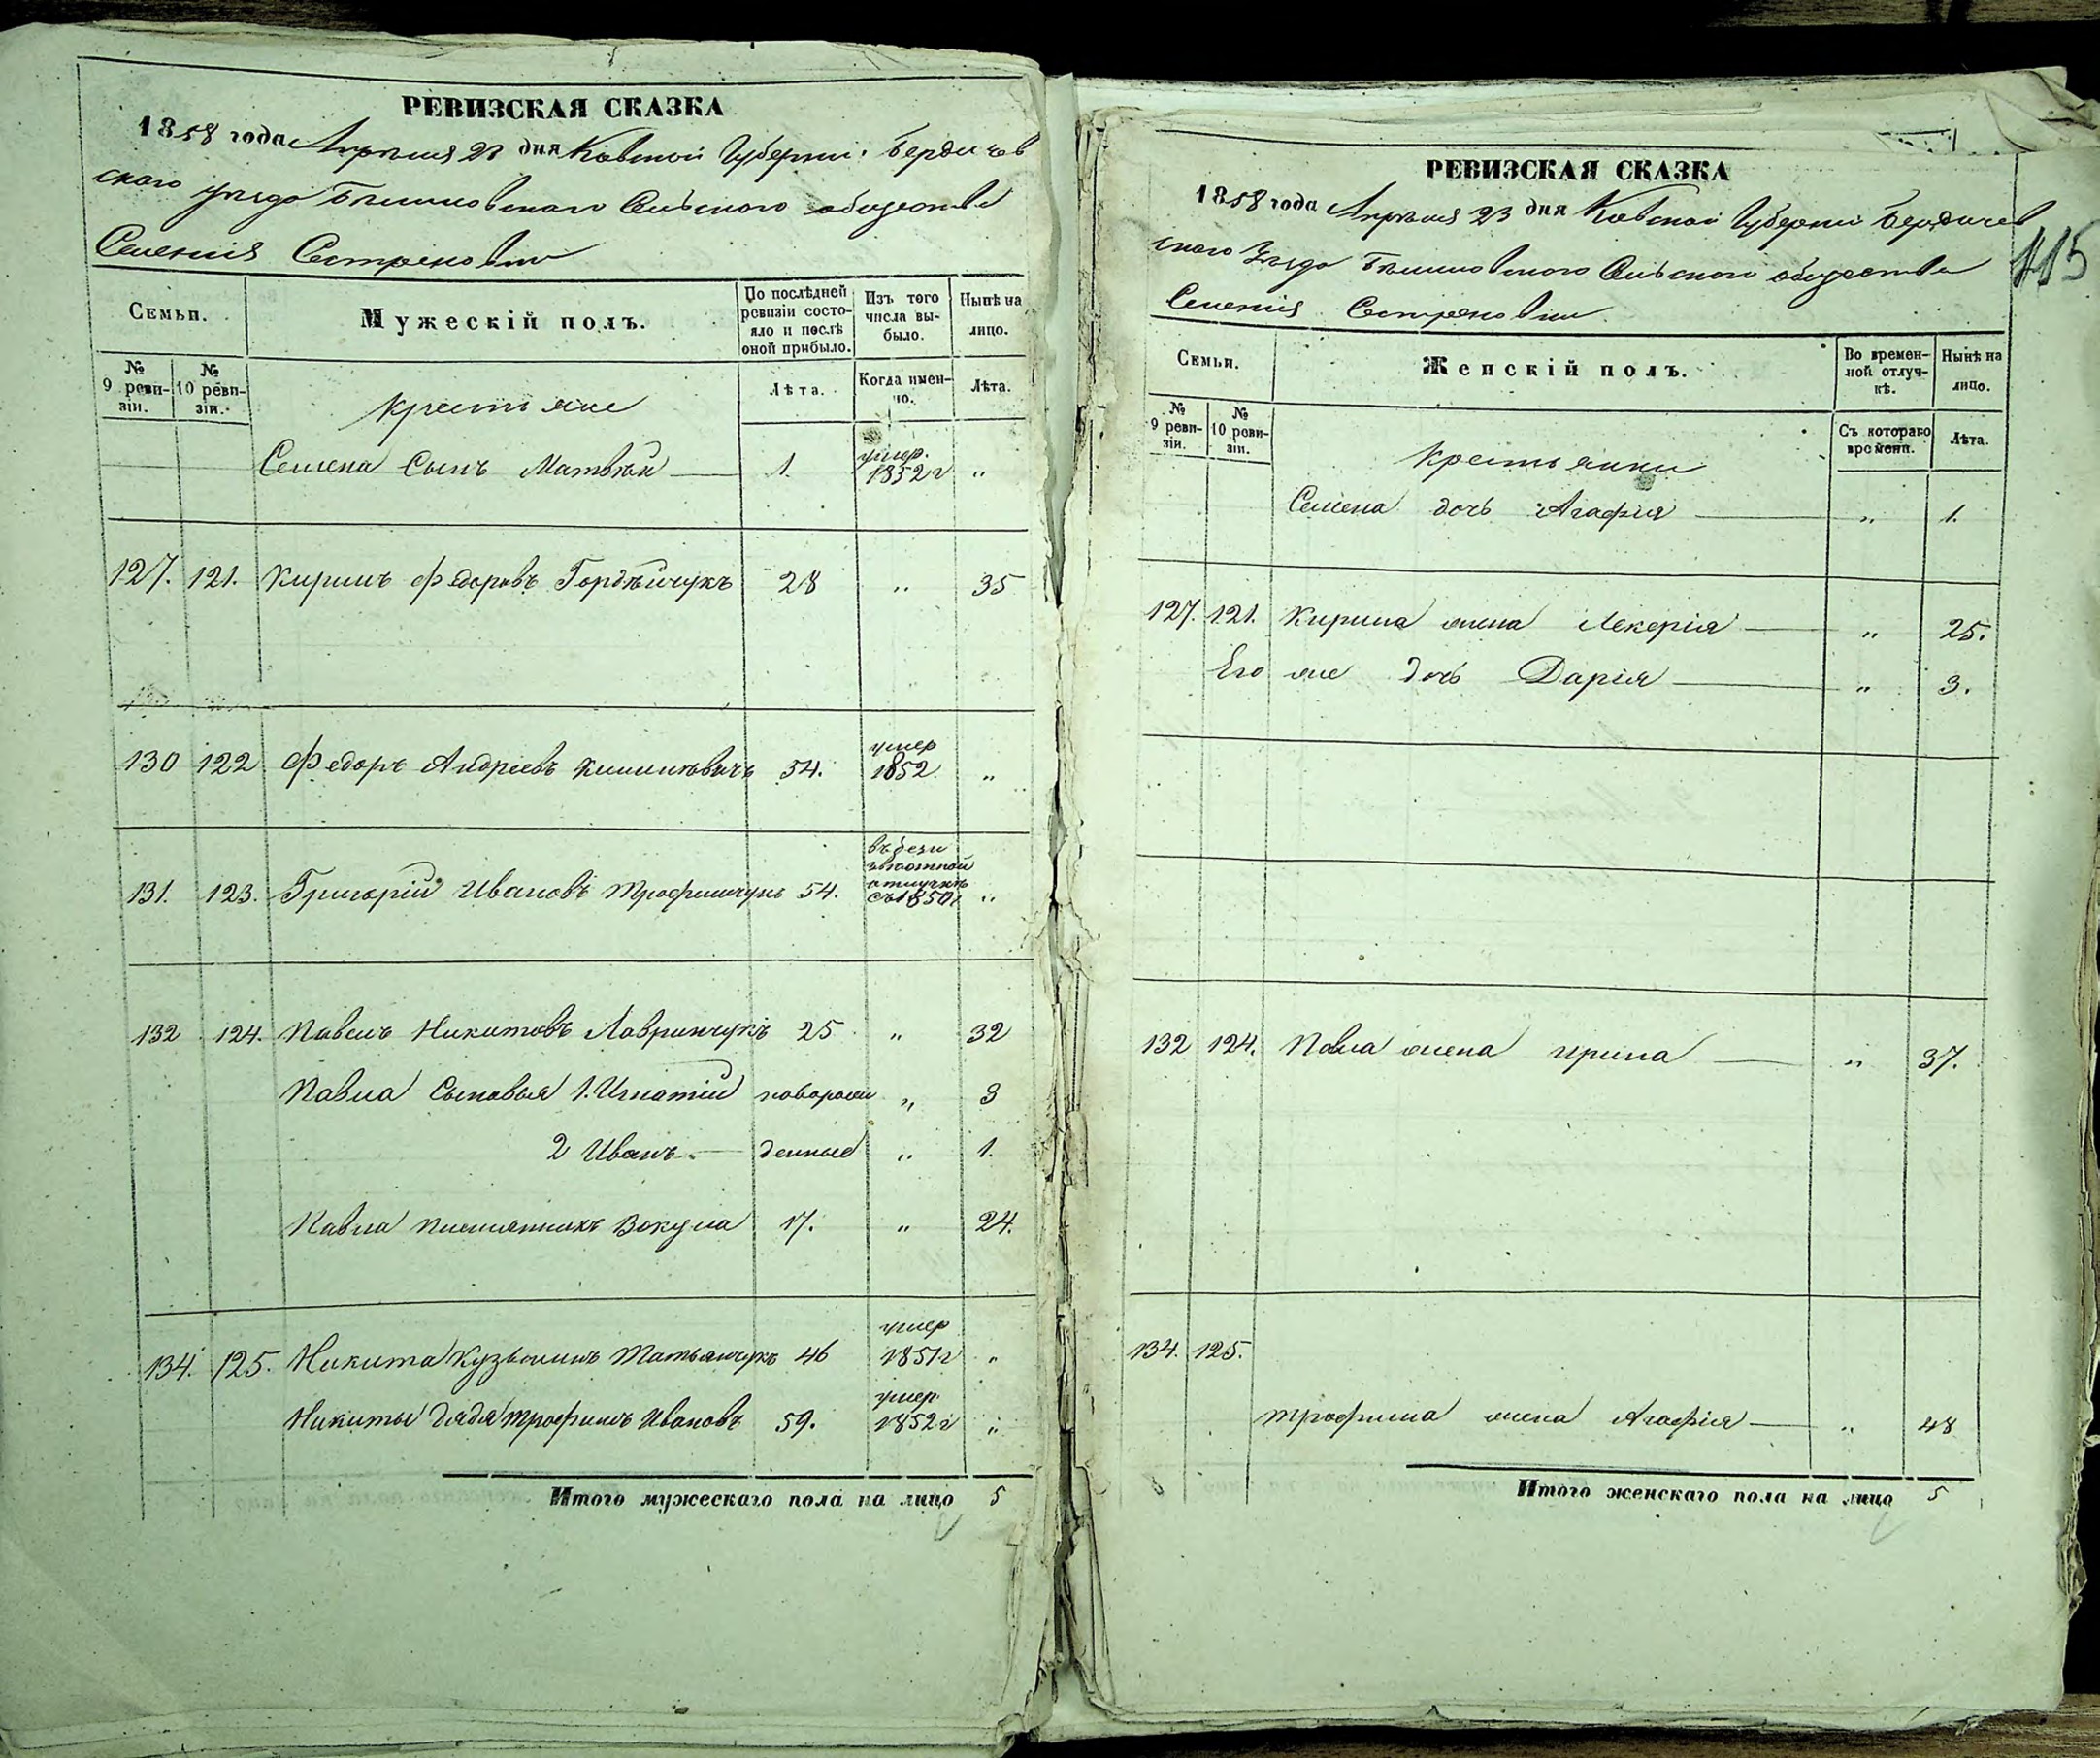 РЕВИЗСКАЯ СКАЗКА
1858 года Апреля 23 дня Киевской Губернии Бердичев
скаго уезда Сельского общества
Селения
Семьи.
Мужескій полъ.
По послѣдней ревизіи состояло и послѣ оной прибыло.
Изъ того числа выбыло.
Нынѣ на лицо.
№ 9 ревизіи.
№ 10 ревизіи.
Крестьяне
Лѣта.
Когда именно.
Лѣта.
Семена Сынъ Матвѣй 1. умер. 1852 г „
127. 121. Кирилъ Федоровъ Гордѣйчукъ 28 „ 35
130 122 Федоръ Андреевъ 54. умер 1852 „
131. 123. Григорій Ивановъ Трофимчукъ 54. въ безизвѣстной отлучкѣ съ 1850 г „
132 124. Павелъ Никитовъ Лавринчукъ 25 „ 32
Павла Сыновья 1. Игнатій новорож „ 3
2 Иванъ денные „ 1.
Павла племянникъ Вокула 17. „ 24.
134. 125. Никита Кузьминъ Татьянчукъ 46 умер 1851 г „
Никиты дядя Трофимъ Ивановъ 59. умер 1852 г „
Итого мужескаго пола на лицо 5
РЕВИЗСКАЯ СКАЗКА
1858 года Апреля 23 дня Киевской Губернии Бердичев
ского уезда Сельского общества
Селения
115
Семьи.
Женскій полъ.
Во временной отлучкѣ.
Нынѣ на лицо.
№ 9 ревизіи.
№ 10 ревизіи.
Крестьянки
Съ котораго времени.
Лѣта.
Семена дочь Агафія „ 1.
127. 121. Кирила жена Лекерія „ 25.
Его же дочь Дарія „ 3.
132 124. Павла жена Ирина „ 37.
134. 125.
Трофима жена Агафія „ 48
Итого женскаго пола на лицо 5